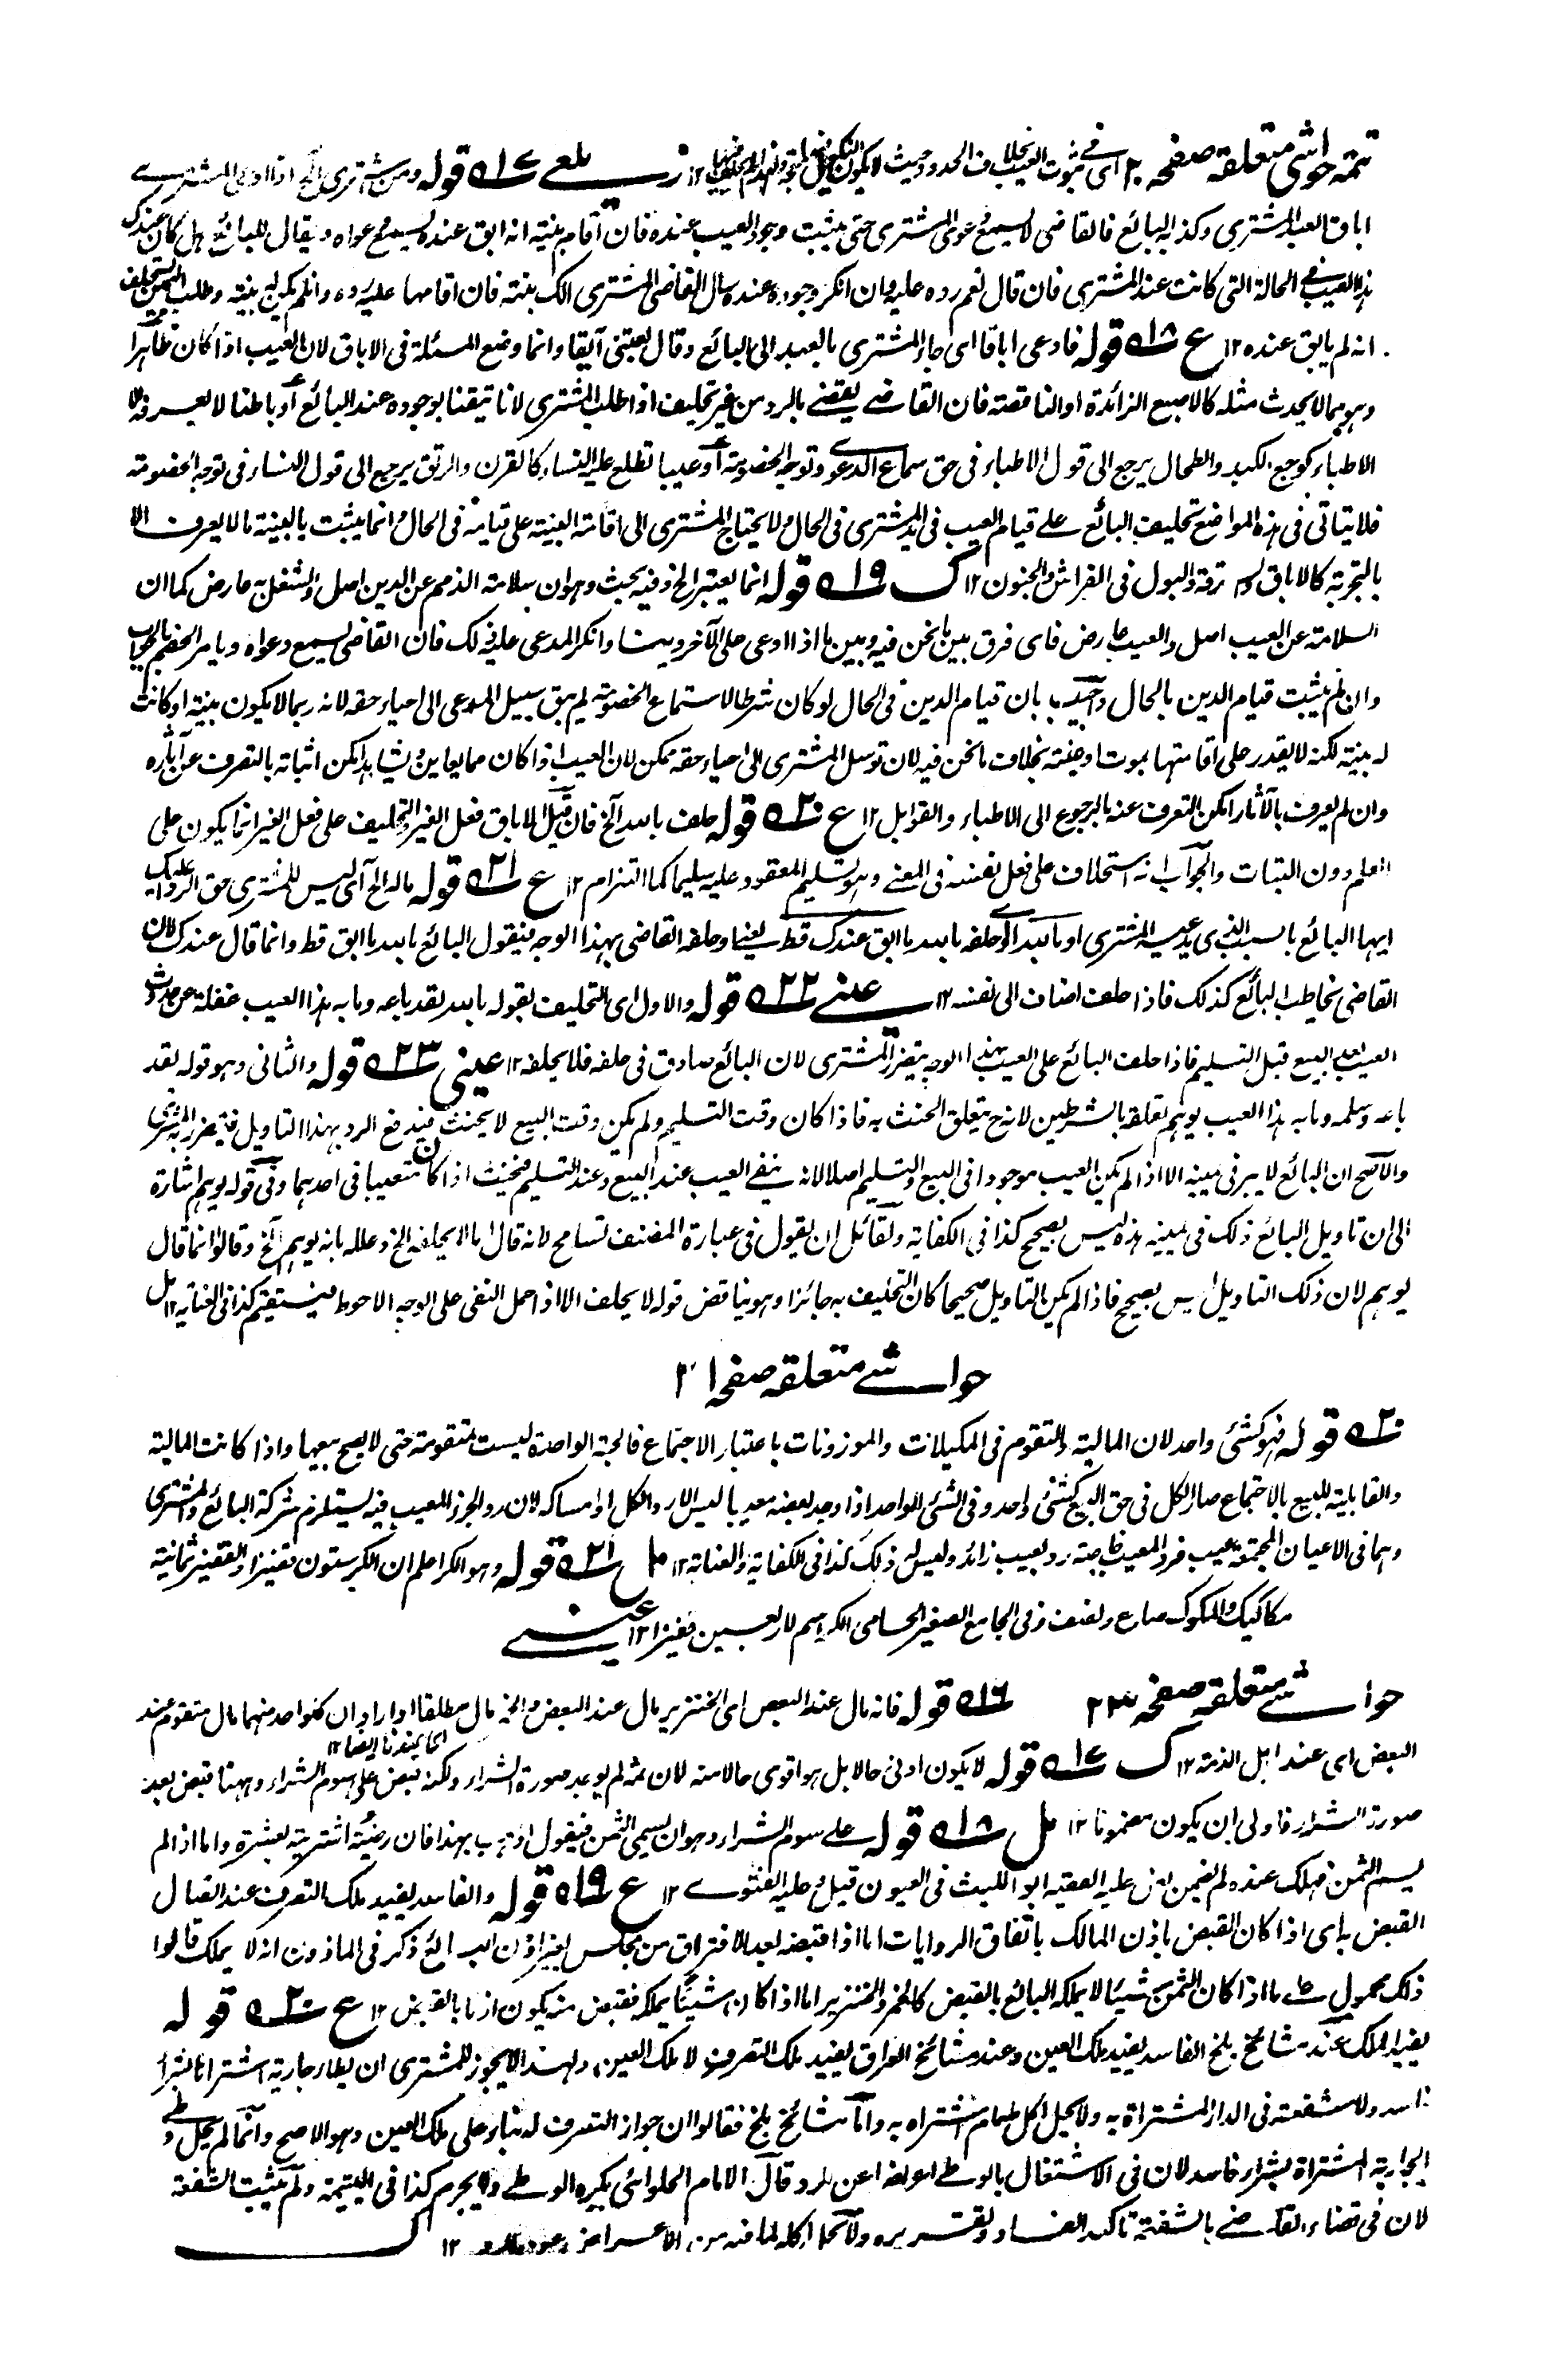 تتمه حواشی متعلقه صفحه ۲۰ ای فی ثبوت العیب بخلاف الحدود حیث لا یکون ۱۲ زیلعی ۱۷ قوله ومن اشتری الخ اذا ادعی المشتری
اباق العبد المشتری وکذبه البائع فالقاضی لا یسمع دعوی المشتری حتی یثبت وجود العیب عنده فان اقام بینة انه ابق عنده یسمع دعواه ویقال للبائع هل کان عندک
هذا العیب فی الحالة التی کانت عند المشتری فان قال نعم رده علیه وان انکر وجوده عنده سال القاضی المشتری الک بینة فان اقامها علیه رده وان لم یکن له بینة وطلب الیمین یستحلف
انه لم یابق عنده ۱۲ ع ۱۸ قوله فادعی اباقا ای جاء المشتری بالعبد الی البائع وقال بعتنی آبقا وانما وضع المسئلة فی الاباق لان العیب اذا کان ظاهرا
وهو مما لا یحدث مثله کالاصبع الزائدة او الناقصة فان القاضی یقضی بالرد من غیر تحلیف اذا طلب المشتری لانا تیقنا بوجوده عند البائع او باطنا لا یعرفه الا
الاطباء کوجع الکبد والطحال یرجع الی قول الاطباء فی حق سماع الدعوی وتوجه الخصومة او عیبا تطلع علیه النساء کالقرن والرتق یرجع الی قول النساء فی توجه الخصومة
فلا یتاتی فی هذه المواضع تحلیف البائع علی قیام العیب فی ید المشتری فی الحال ولا یحتاج المشتری الی اقامة البینة علی قیامه فی الحال وانما یثبت بالبینة ما لا یعرف الا
بالتجربة کالاباق والسرقة والبول فی الفراش والجنون ۱۲ ک ۱۹ قوله انما یعتبر الخ وفیه بحث وهو ان سلامة الذمم عن الدین اصل والشغل به عارض کما ان
السلامة عن العیب اصل والعیب عارض فای فرق بین ما نحن فیه وبین ما اذا ادعی علی الآخر دینا وانکر المدعی علیه ذلک فان القاضی یسمع دعواه ویامر الخصم بالجواب
وان لم یثبت قیام الدین بالحال واجیب بان قیام الدین فی الحال لو کان شرطا لاستماع الخصومة لم یبق سبیل للمدعی الی احیاء حقه لانه ربما لا یکون بینة او کانت
له بینة لکنه لا یقدر علی اقامتها بموت او غیبة بخلاف ما نحن فیه لان توسل المشتری الی احیاء حقه ممکن لان العیب اذا کان مما یعاین ویشاهد امکن اثباته بالتعرف عن آثاره
وان لم یعرف بالآثار امکن التعرف عنه بالرجوع الی الاطباء والقوابل ۱۲ ع ۲۰ قوله حلف بالله الخ فان قیل الاباق فعل الغیر والتحلیف علی فعل الغیر انما یکون علی
العلم دون البتات والجواب انه استحلاف علی فعل نفسه فی المعنی وهو تسلیم المعقود علیه سلیما کما التزام ۱۲ ع ۲۱ قوله ماله الخ ای لیس للمشتری حق الرد علیک
ایها البائع بالسبب الذی یدعیه المشتری او بالله الخ ای حلفه بالله ما ابق عندک قط یعنی او حلفه القاضی بهذا الوجه فیقول البائع بالله ما ابق قط وانما قال عندک لان
القاضی یخاطب البائع کذلک فاذا حلف اضاف الی نفسه ۱۲ عینی ۲۲ قوله والاول ای التحلیف بقوله بالله لقد باعه وما به هذا العیب غفلة عن حدوث
العیب بعد البیع قبل التسلیم فاذا حلف البائع علی العیب بهذا الوجه یتضرر المشتری لان البائع صادق فی حلفه فلا یحلفه ۱۲ عینی ۲۳ قوله والثانی وهو قوله لقد
باعه وسلمه وما به هذا العیب یوهم تعلقه بالشرطین لانه ح یتعلق الحنث به فاذا کان وقت التسلیم ولم یکن وقت البیع لا یحنث فیدفع الرد بهذا التاویل فیتضرر به المشتری
والاصح ان البائع لا یبر فی یمینه الا اذا لم یکن العیب موجودا فی البیع والتسلیم اصلا لانه ینفی العیب عند البیع وعند التسلیم فیحنث اذا کان متعیبا فی احدهما وفی قوله یوهم اشارة
الی ان تاویل البائع ذلک فی یمینه هذه لیس بصحیح کذا فی الکفایة ولقائل ان یقول فی عبارة المصنف تسامح لانه قال اما لا یحلفه الخ وعلله بانه یوهم الخ وقالوا انما قال
یوهم لان ذلک التاویل لیس بصحیح فاذا لم یکن التاویل صحیحا کان التحلیف به جائزا وهو یناقض قوله لا یحلف الا اذا حمل النفی علی الوجه الاحوط فیستقیم کذا فی العنایة ۱۲ مل
حواشی متعلقه صفحه ۲۱
۲۰ قوله فهو کشئ واحد لان المالیة والتقوم فی المکیلات والموزونات باعتبار الاجتماع فالحبة الواحدة لیست متقومة حتی لا یصح بیعها واذا کانت المالیة
والقابلیة للبیع بالاجتماع صار الکل فی حق البیع کشئ واحد وفی الشئ الواحد اذا وجد بعضه معیبا لیس الا رد الکل او امساکه لان رد الجزء المعیب فیه یستلزم شرکة البائع والمشتری
وهما فی الاعیان المجتمعة عیب فرد المعیب خاصة رد بعیب زائد ولیس له ذلک کذا فی الکفایة والعنایة ۱۲ مل ۲۱ قوله وهو الکر اعلم ان الکر ستون قفیزا والقفیز ثمانیة
مکاکیک والمکوک صاع ونصف وفی الجامع الصغیر الحسامی الکر اسم لاربعین قفیزا ۱۲ عینی
حواشی متعلقه صفحه ۲۳ ۱۶ قوله فانه مال عند البعض ای الخنزیر مال عند البعض والخمر مال مطلقا او اراد ان کل واحد منهما مال متقوم عند
ای عندنا ایضا ۱۲
البعض ای عند اهل الذمة ۱۲ ک ۱۷ قوله لا یکون ادنی حالا بل هو اقوی حالا منه لان ثمه لم یوجد صورة الشراء ولکنه قبض علی سوم الشراء وههنا قبض بعد
صورة الشراء فاولی ان یکون مضمونا ۱۲ مل ۱۸ قوله علی سوم الشراء وهو ان یسمی الثمن فیقول اذهب بهذا فان رضیته اشتریته بعشرة واما اذا لم
یسم الثمن فهلک عنده لم یضمن نص علیه الفقیه ابو اللیث فی العیون قیل وعلیه الفتوی ۱۲ ع ۱۹ قوله والفاسد یفید ملک التصرف عند اتصال
القبض به ای اذا کان القبض باذن المالک باتفاق الروایات اما اذا قبضه بعد الافتراق من مجلس بغیر اذن البائع ذکر فی الماذون انه لا یملک قالوا
ذلک محمول علی ما اذا کان الثمن شیئا لا یملکه البائع بالقبض کالخمر والخنزیر اما اذا کان شیئا یملکه فقبض منه یکون اذنا بالقبض ۱۲ ع ۲۰ قوله
یفید الملک عند مشائخ بلخ الفاسد یفید ملک العین وعند مشائخ العراق یفید ملک التصرف لا ملک العین ولهذا لا یجوز للمشتری ان یطاء جاریة اشتراها بشراء
فاسد ولا شفعة فی الدار المشتراة به ولا یحل اکل طعام اشتراه به واما مشائخ بلخ فقالوا ان جواز التصرف له بناء علی ملک العین وهو الاصح وانما لم یحل وطی
الجاریة المشتراة بشراء فاسد لان فی الاشتغال بالوطی اعراضا عن الرد وقال الامام الحلوائی یکره الوطی ولا یحرم کذا فی الیتیمة ولم یثبت الشفعة
لان فی قضاء القاضی بالشفعة تاکید الفساد وتقریره ولا یحل اکله لما فیه من الاعراض عن الرد ۱۲ ک